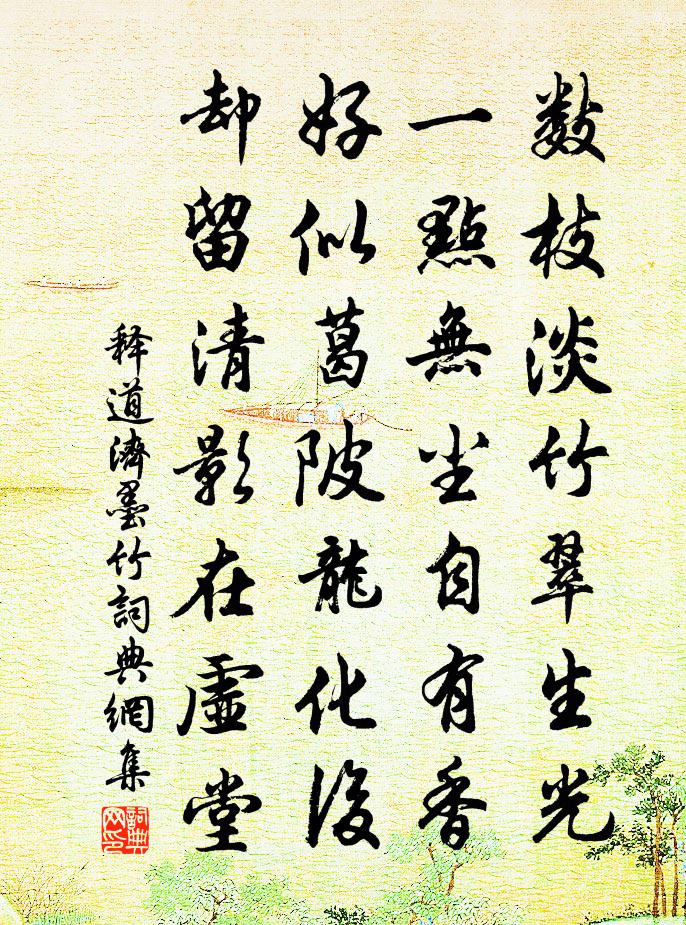 數枝淡竹翠生光
一點無尘自有香
好似葛陂龍化後
却留清影在虛堂
释道濟墨竹詞典網集
詞典
网印